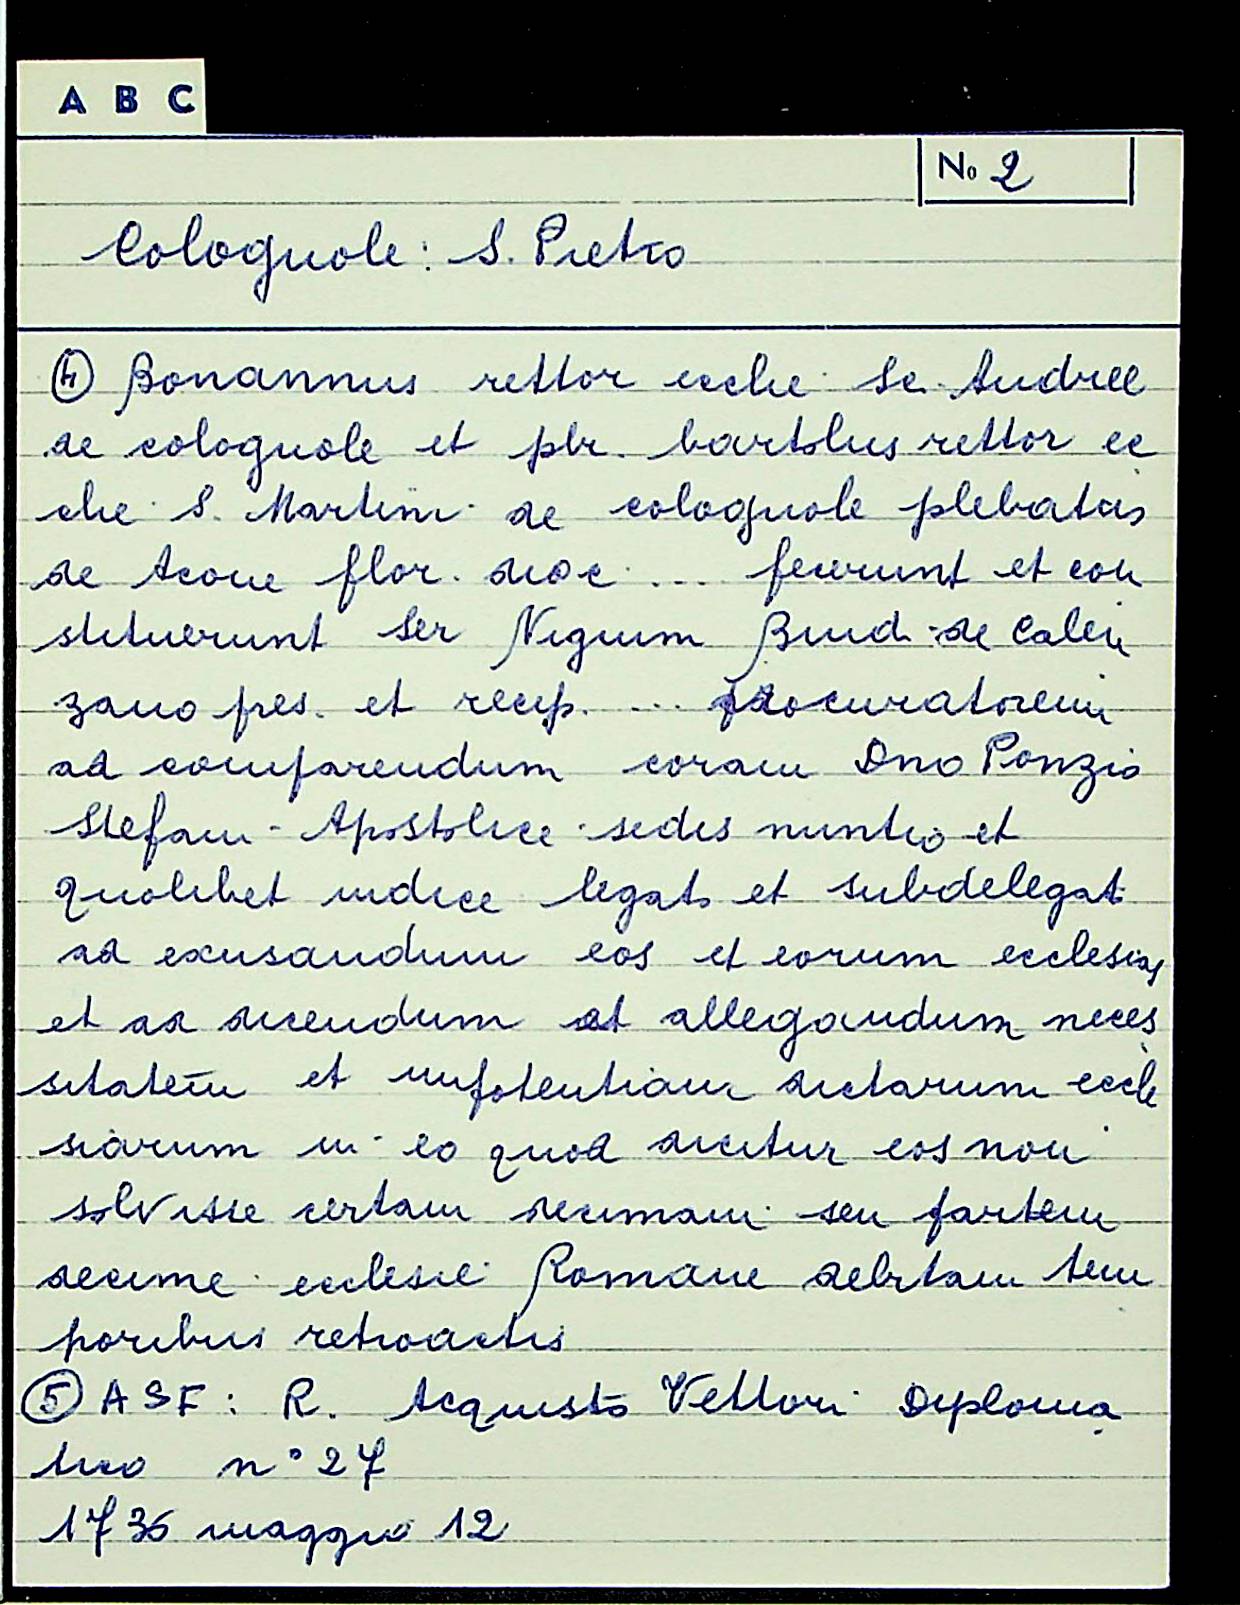 A B C
No 2
Colognole: S. Pietro
④ Bonannus rettor ecche Sc. Andree
de colognole et pbr. bartolus rettor ec
che S. Martini de colognole plebatus
de Acone flor. dioc. ... fecerunt et con
stituerunt Ser Nigium Bind. de Calen
zano pres. et recip. ... procuratorem
ad comparendum coram Dno Ponzio
Stefani Apostolice sedis nuntio et
quolibet iudice legato et subdelegat
ad exusandum eos et eorum ecclesias
et ad dicendum et allegandum neces
sitatem et impotentiam dictarum eccle
siarum in eo quod dicitur eos non
solvisse certam decimam seu partem
decime ecclesie Romane debitam tem
poribus retroactis
⑤ ASF: R. Acquisto Vettori Diploma
tico n° 27
1736 maggio 12